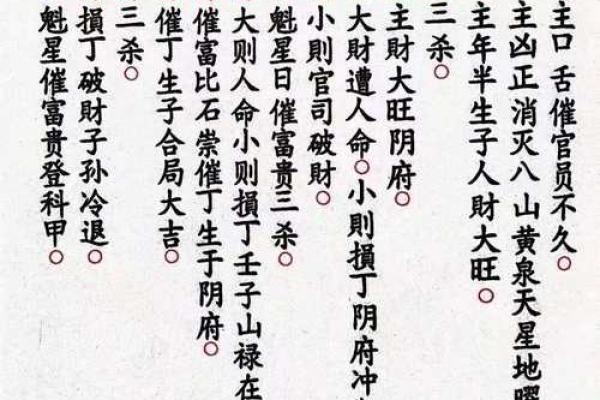 主口舌催官员不久。
主凶正消灭八山黄泉天星地曜
主年半生子人財大旺。
三杀。
主財大旺阴府。
大財遭人命。小則損丁阴府冲
小則官司破財。
魁星日催富贵三杀。
大则人命小则損丁壬子山禄在
催富比石崇催丁生于阴府。
催丁生子合局大吉。
三杀。
損丁破財子孙冷退。
魁星催富贵登科甲。